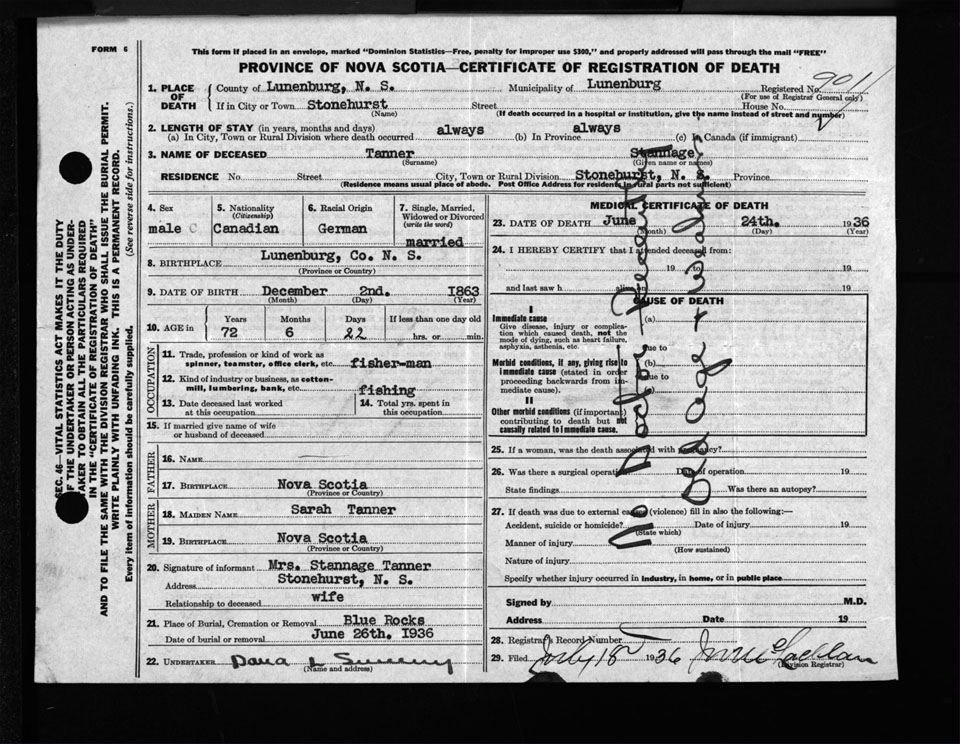 FORM 6
This form if placed in an envelope, marked "Dominion Statistics—Free, penalty for improper use $300," and properly addressed will pass through the mail "FREE"
PROVINCE OF NOVA SCOTIA—CERTIFICATE OF REGISTRATION OF DEATH
SEC. 46—VITAL STATISTICS ACT MAKES IT THE DUTY
OF THE UNDERTAKER OR PERSON ACTING AS UNDER-
TAKER TO OBTAIN ALL THE PARTICULARS REQUIRED
IN THE "CERTIFICATE OF REGISTRATION OF DEATH"
AND TO FILE THE SAME WITH THE DIVISION REGISTRAR WHO SHALL ISSUE THE BURIAL PERMIT.
WRITE PLAINLY WITH UNFADING INK. THIS IS A PERMANENT RECORD.
Every item of information should be carefully supplied. (See reverse side for instructions.)
1. PLACE OF DEATH
County of Lunenburg, N. S. Municipality of Lunenburg Registered No. 901
(For use of Registrar General only)
If in City or Town Stonehurst Street House No.
(Name) (If death occurred in a hospital or institution, give the name instead of street and number)
2. LENGTH OF STAY (in years, months and days)
(a) In City, Town or Rural Division where death occurred always (b) In Province always (c) In Canada (if immigrant)
3. NAME OF DECEASED Tanner Stannage
(Surname) (Given name or names)
RESIDENCE No. Street City, Town or Rural Division Stonehurst, N. S. Province
(Residence means usual place of abode. Post Office Address for residents in rural parts not sufficient)
4. Sex male C
5. Nationality (Citizenship) Canadian
6. Racial Origin German
7. Single, Married, Widowed or Divorced (write the word) married
8. BIRTHPLACE Lunenburg, Co. N. S.
(Province or Country)
9. DATE OF BIRTH December 2nd. 1863
(Month) (Day) (Year)
10. AGE in Years 72 Months 6 Days 22 If less than one day old hrs. or min.
OCCUPATION
11. Trade, profession or kind of work as spinner, teamster, office clerk, etc. fisher-man
12. Kind of industry or business, as cotton-mill, lumbering, bank, etc. fishing
13. Date deceased last worked at this occupation
14. Total yrs. spent in this occupation
15. If married give name of wife or husband of deceased
FATHER
16. NAME
17. BIRTHPLACE Nova Scotia
(Province or Country)
MOTHER
18. MAIDEN NAME Sarah Tanner
19. BIRTHPLACE Nova Scotia
(Province or Country)
20. Signature of informant Mrs. Stannage Tanner
Address Stonehurst, N. S.
Relationship to deceased wife
21. Place of Burial, Cremation or Removal Blue Rocks
Date of burial or removal June 26th. 1936
22. UNDERTAKER Dana L Sweeny
(Name and address)
MEDICAL CERTIFICATE OF DEATH
23. DATE OF DEATH June 24th. 1936
(Month) (Day) (Year)
24. I HEREBY CERTIFY that I attended deceased from:
19 to 19
and last saw h alive on 19
CAUSE OF DEATH
I
Immediate cause (a)
Give disease, injury or complication which caused death, not the mode of dying, such as heart failure, asphyxia, asthenia, etc.
due to
Morbid conditions, if any, giving rise to immediate cause (stated in order proceeding backwards from immediate cause). (b)
due to
(c)
II
Other morbid conditions (if important) contributing to death but not causally related to immediate cause.
No Doctor
Old age & Weakness
25. If a woman, was the death associated with pregnancy?
26. Was there a surgical operation Date of operation 19
State findings Was there an autopsy?
27. If death was due to external causes (violence) fill in also the following:—
Accident, suicide or homicide? Date of injury 19
(State which)
Manner of injury
(How sustained)
Nature of injury
Specify whether injury occurred in industry, in home, or in public place
Signed by M.D.
Address Date 19
28. Registrar's Record Number
29. Filed July 15 1936
(Division Registrar)